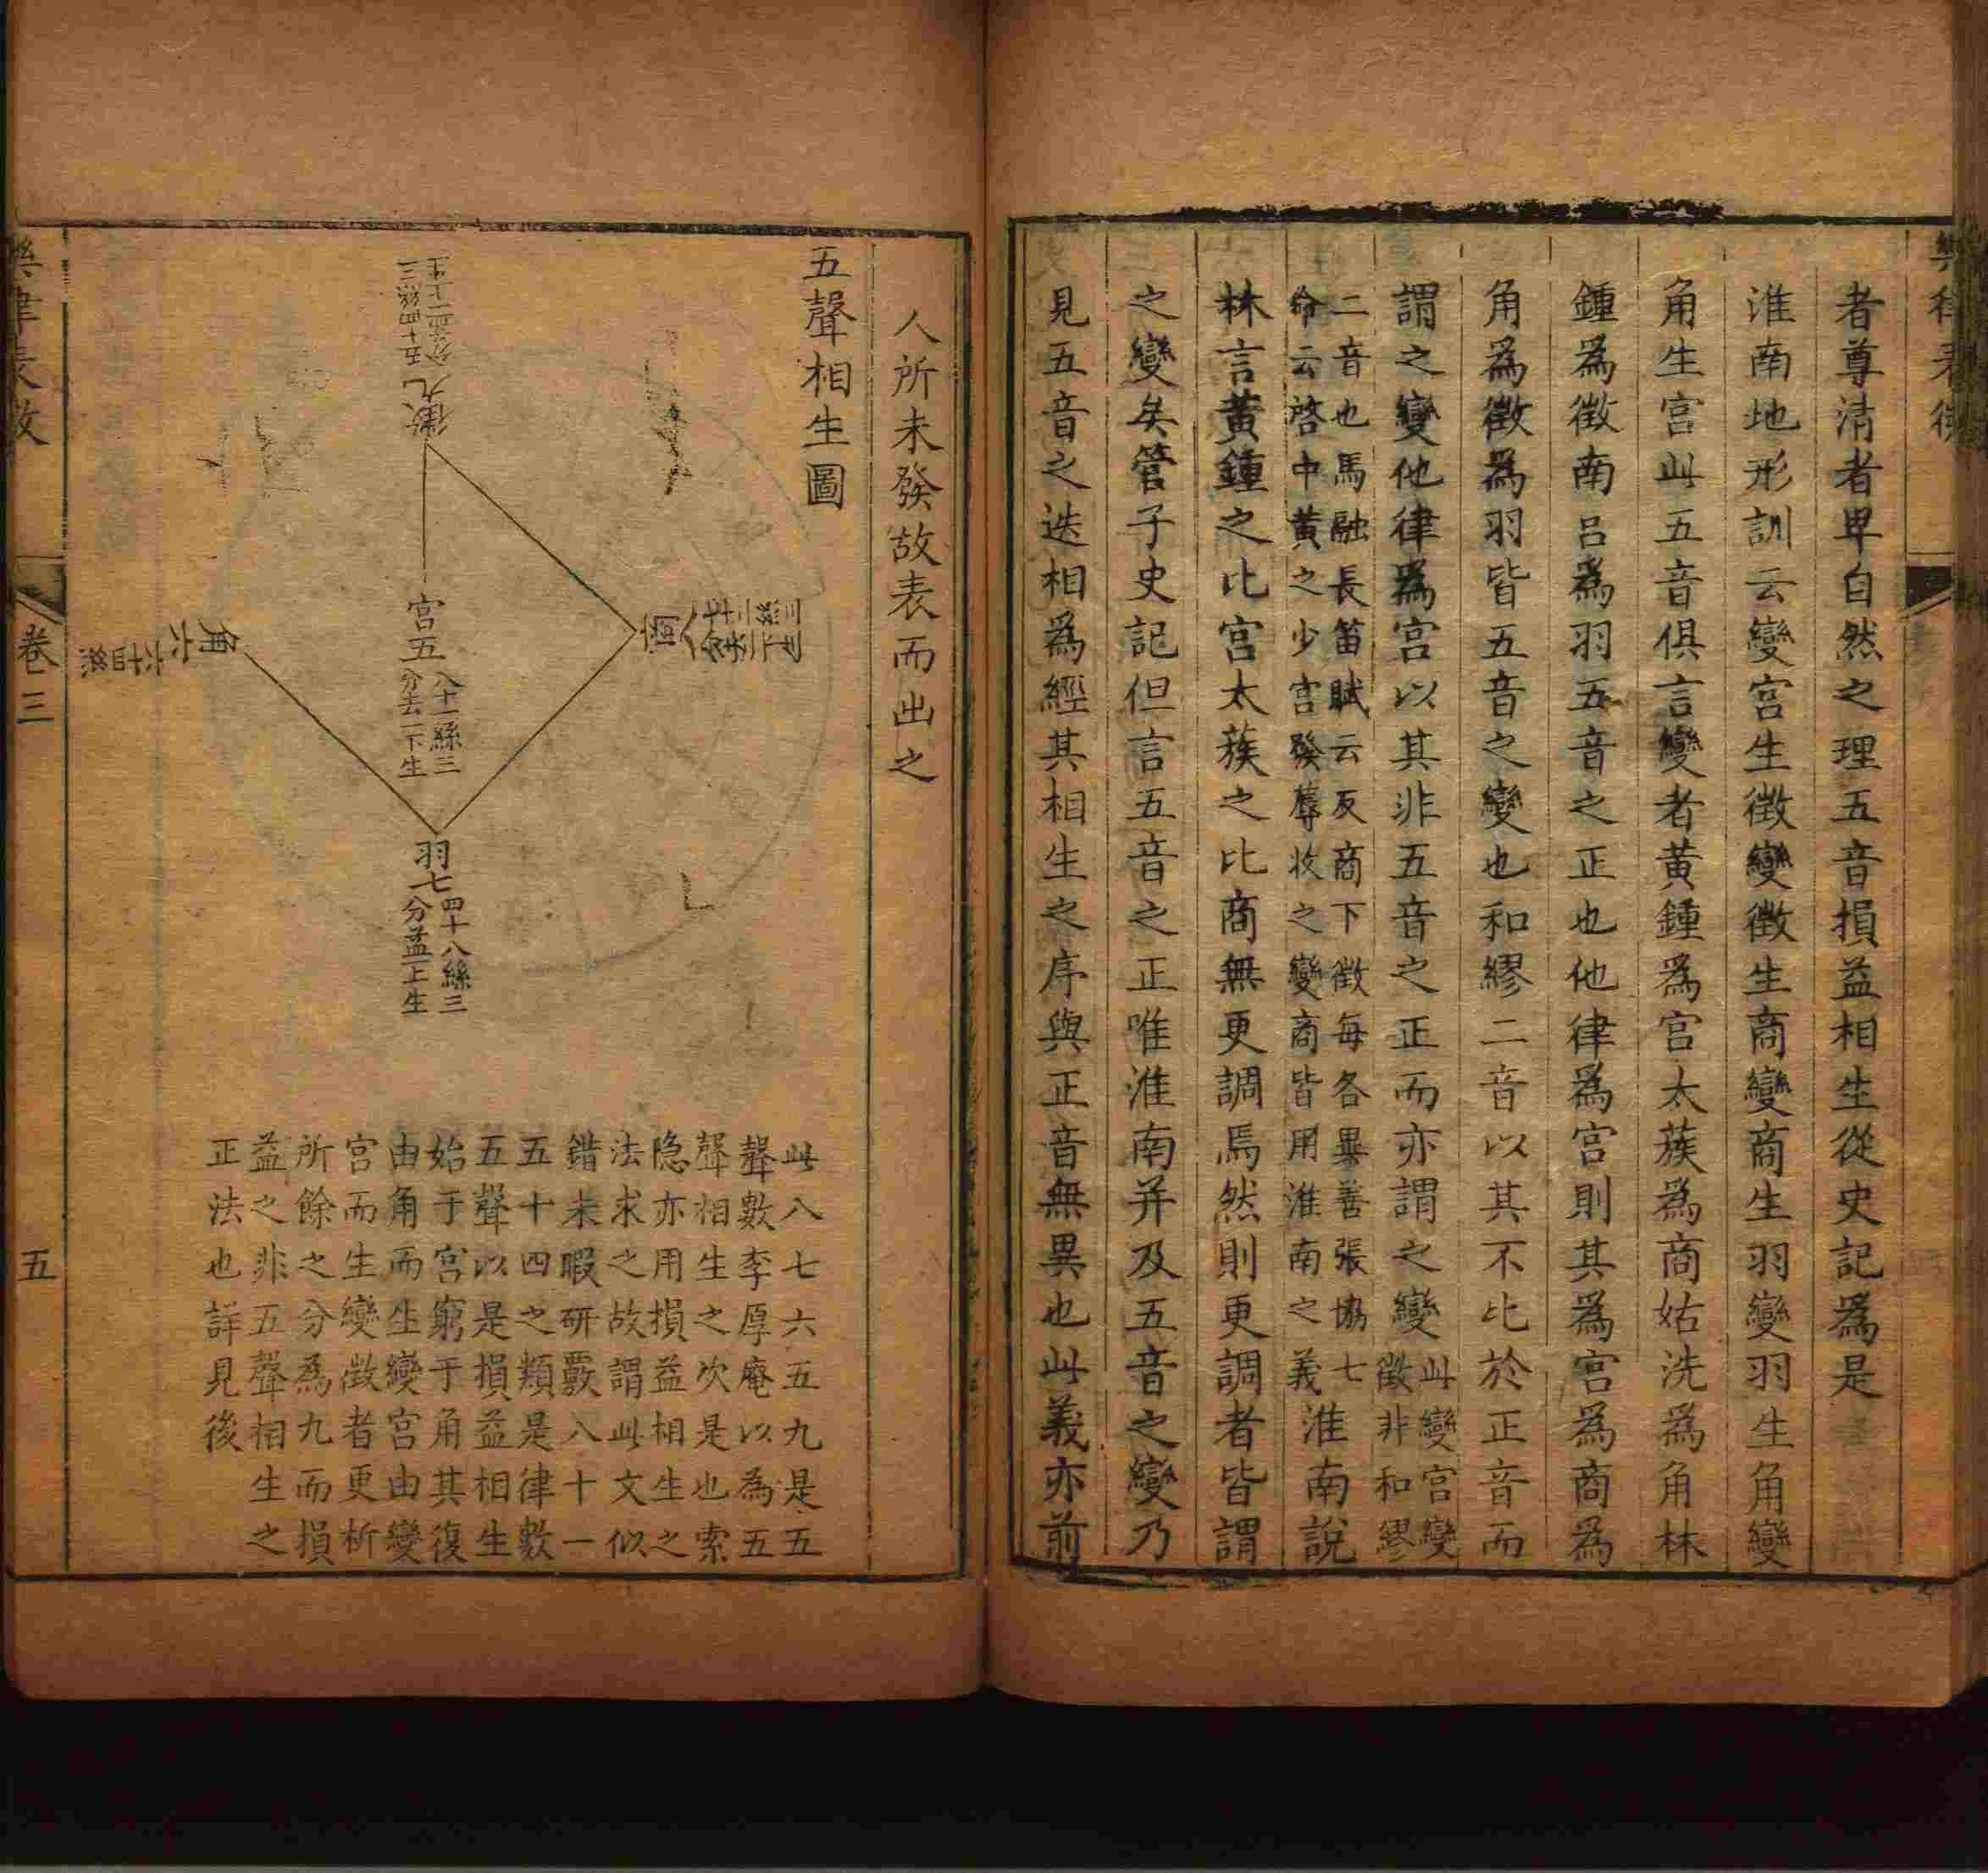 樂律表微
者尊清者卑自然之理五音損益相生從史記爲是
淮南地形訓云變宮生徵變徵生商變商生羽變羽生角變
角生宮此五音俱言變者黃鍾爲宮太蔟爲商姑洗爲角林
鍾爲徵南呂爲羽五音之正也他律爲宮則其爲宮爲商爲
角爲徵爲羽皆五音之變也和繆二音以其不比於正音而
謂之變他律爲宮以其非五音之正而亦謂之變此變宮變
徵非和繆
二音也馬融長笛賦云反商下徵每各異善張協七
命云啓中黃之少宮發蓐收之變商皆用淮南之義淮南說
林言黃鍾之比宮太蔟之比商無更調焉然則更調者皆謂
之變矣管子史記但言五音之正唯淮南并及五音之變乃
見五音之迭相爲經其相生之序與正音無異也此義亦前
人所未發故表而出之
五聲相生圖
徵九
五十四絲三
分益一上生
宮五
八十一絲三
分去一下生
商八
七十二絲三
分去一下生
羽七
四十八絲三
分益一上生
角六
六十四絲
此八七六五九是五
聲數李厚庵以為五
聲相生之次是也索
隐亦用損益相生之
法求之故謂此文似
錯未暇研覈八十一
五十四之類是律數
五聲以是損益相生
始于宮窮于角其復
由角而生變宮由變
宮而生變徵者更析
所餘之分為九而損
益之非五聲相生之
正法也詳見後
卷三
五